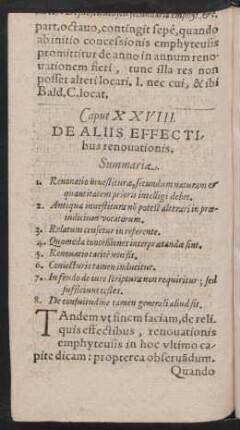 part. octauo, contingit sępè, quando
ab initio concessionis emphyteusis
promittitur de anno in annum reno-
uationem fieri, tunc illa res non
posset alteri locari. l. nec cui, & ibi
Bald. C. locat.
Caput XXVIII.
DE ALIIS EFFECTI-
bus renouationis.
Summaria.
1. Renouatio inuestituræ, secundum naturam &
quantitatem prioris intelligi debet.
2. Antiqua inuestitura nō potest alterari in præ-
iudicium vocatorum.
3. Relatum censetur in referente.
4. Quomodo concessiones interpretandæ sint.
5. Renouatio tacitè non fit.
6. Coniecturis tamen inducitur.
7. In feudo de iure scriptura non requiritur; sed
sufficiunt testes.
8. De consuetudine tamen generali aliud sit.
TAndem vt finem faciam, de reli-
quis effectibus, renouationis
emphyteusis in hoc vltimo ca-
pite dicam: propterea obseruãdum.
Quando